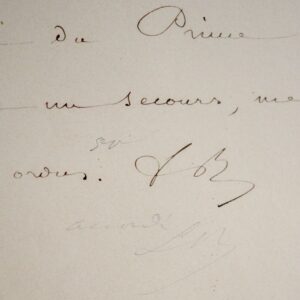 du Prince
un secours, me
50
ordres.
accordé